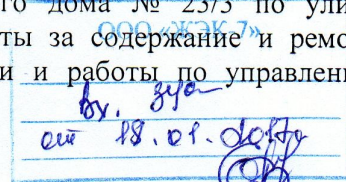 го дома № 23/3 по ули
ООО «ЖЭК-7»
ты за содержание и ремо
и и работы по управлени
Вх.
от 18.01.2017г